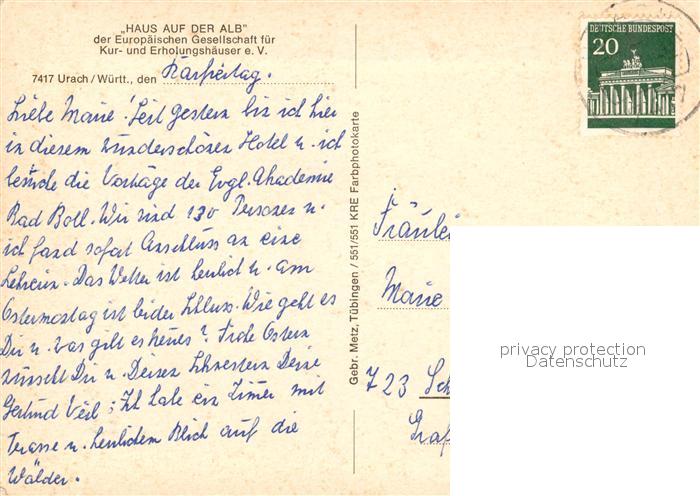 „HAUS AUF DER ALB"
der Europäischen Gesellschaft für
Kur- und Erholungshäuser e. V.
7417 Urach / Württ., den Karfreitag.
Liebe Marie! Seit gestern bin ich hier
in diesem wunderschönen Hotel u. ich
besuche die Vorträge der Evgl. Akademie
Bad Boll. Wir sind 130 Personen u.
ich fand sofort Anschluss an eine
Lehrerin. Das Wetter ist herrlich u. am
Ostermontag ist leider Schluss. Wie geht es
Dir u. was gibt es neues? Frohe Ostern
wünscht Dir u. Deinen Schwestern Deine
Gertrud Veil; Ich habe ein Zimmer mit
Terasse u. herrlichem Blick auf die
Wälder.
Gebr. Metz, Tübingen / 551/551 KRE Farbphotokarte
DEUTSCHE BUNDESPOST
20
Fräulei
Marie
723 Sch
Graf
privacy protection
Datenschutz